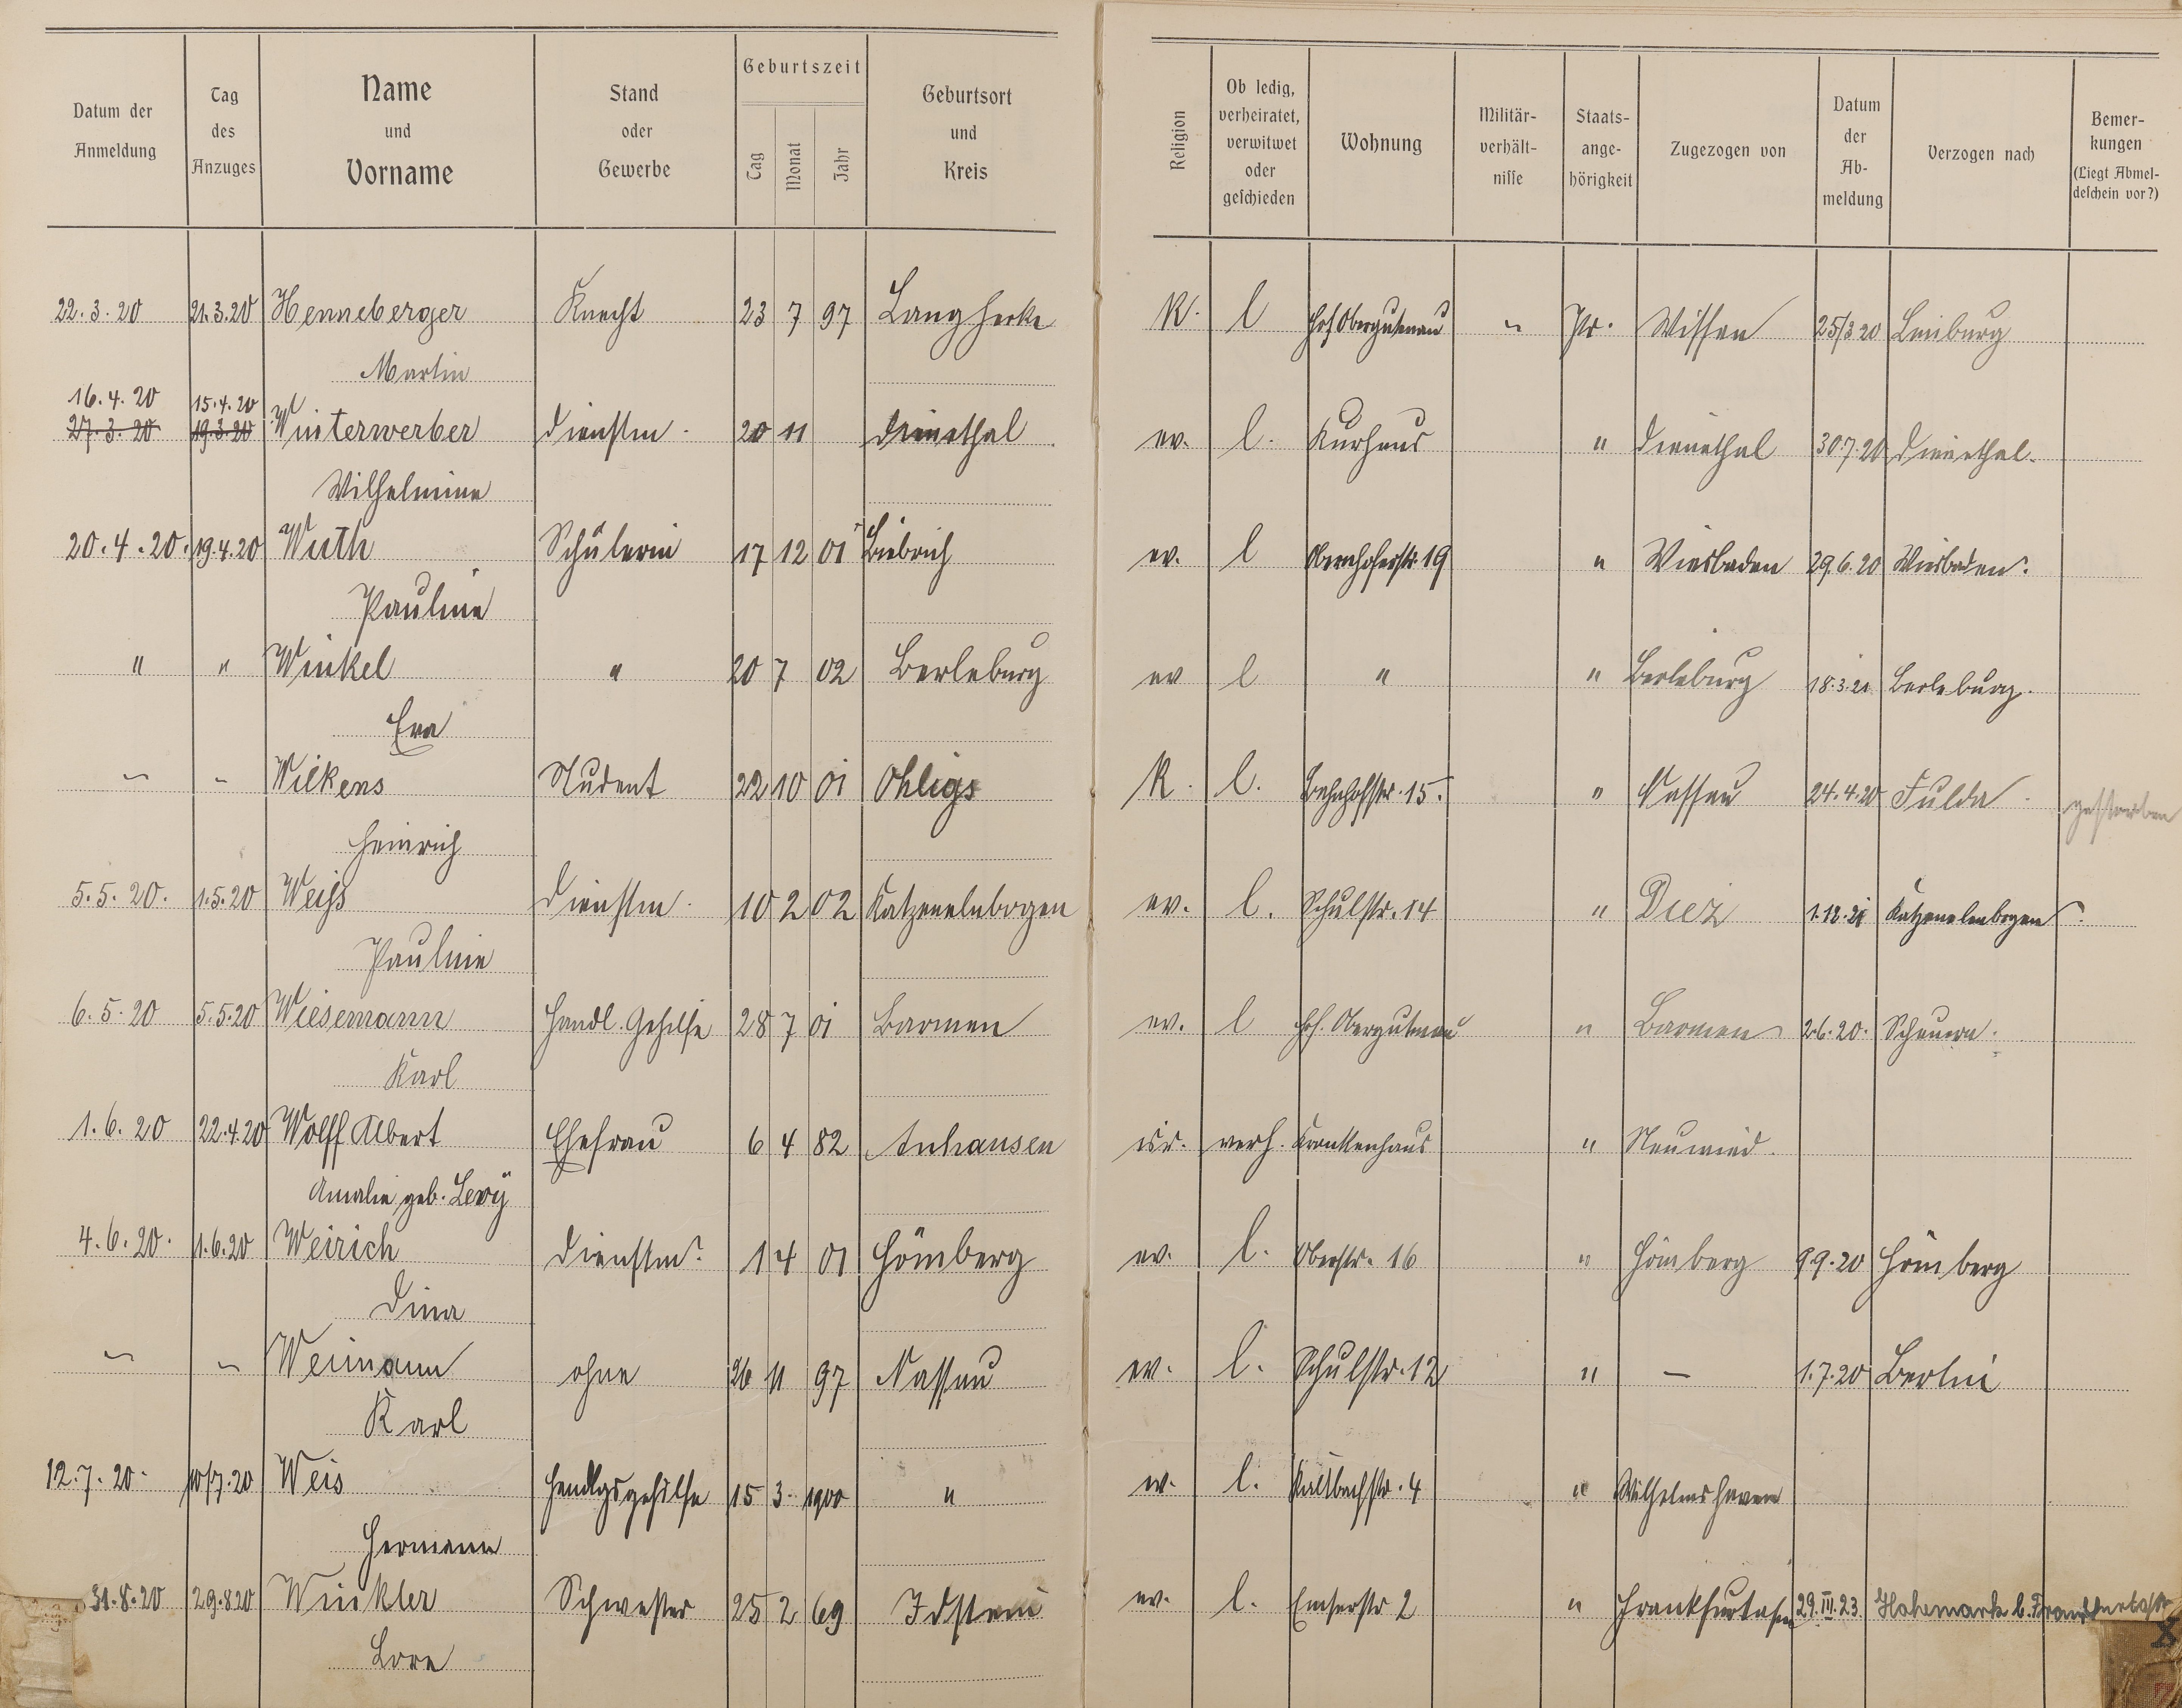 Datum der Anmeldung | Tag des Anzuges | Name und Vorname | Stand oder Gewerbe | Geburtszeit Tag Monat Jahr | Geburtsort und Kreis | Religion | Ob ledig, verheiratet, verwitwet oder geschieden | Wohnung | Militär-verhält-nisse | Staats-ange-hörigkeit | Zugezogen von | Datum der Ab-meldung | Verzogen nach | Bemer-kungen (Liegt Abmel-deschein vor?)
22.3.20 21.3.20 Henneberger Knecht 23 7 97 Langhecke K. l Hof Obergutenau " Pr. Wissen 25/3 20 Limburg
Martin
16.4.20 15.4.20
27.3.20 19.3.20 Winterwerber Dienstm. 20 11 Dienethal ev. l. Kurhaus " Dienethal 30.7.20 Dienethal.
Wilhelmine
20.4.20. 19.4.20 Wuth Schülerin 17 12 01 Biebrich ev. l Obernhoferstr. 19 " Wiesbaden 29.6.20 Wiesbaden.
Pauline
" " Winkel " 20 7 02 Berleburg ev l " " Berleburg 18.3.21 Berleburg.
Eva
" " Wilkens Student 22 10 01 Ohligs K. l. Bahnhofstr. 15. " Nassau 24.4.20 Fulda. gestorben
Heinrich
5.5.20. 1.5.20 Weiß Dienstm. 10 2 02 Katzenelnbogen ev. l. Schulstr. 14 " Diez 1.12.21 Katzenelenbogen
Pauline
6.5.20 5.5.20 Wiesemann Handl. Gehilfe 28 7 01 Barmen ev. l Hof. Obergutenau " Barmen 2.6.20. Scheuern.
Karl
1.6.20 22.4.20 Wolff Albert Ehefrau 6 4 82 Anhausen isr. verh. Krankenhaus " Neuwied.
Amalie geb. Levÿ
4.6.20. 1.6.20 Weirich Dienstm. 1 4 01 Hömberg ev. l. Oberstr. 16 " Hömberg 9.9.20 Hömberg
Dina
" " Weimann ohne 26 11 97 Nassau ev. l. Schulstr. 12 " — 1.7.20 Berlin
Karl
12.7.20. 10/7.20 Weis Handlgsgehilfe 15 3. 1900 " ev. l. Kaltbachstr. 4 " Wilhelmshaven
Hermann
31.8.20 29.8.20 Winkler Schwester 25 2 69 Idstein ev. l. Emserstr 2 " Frankfurt 29.III.23 Hohemark b. Frankfurt
Lore